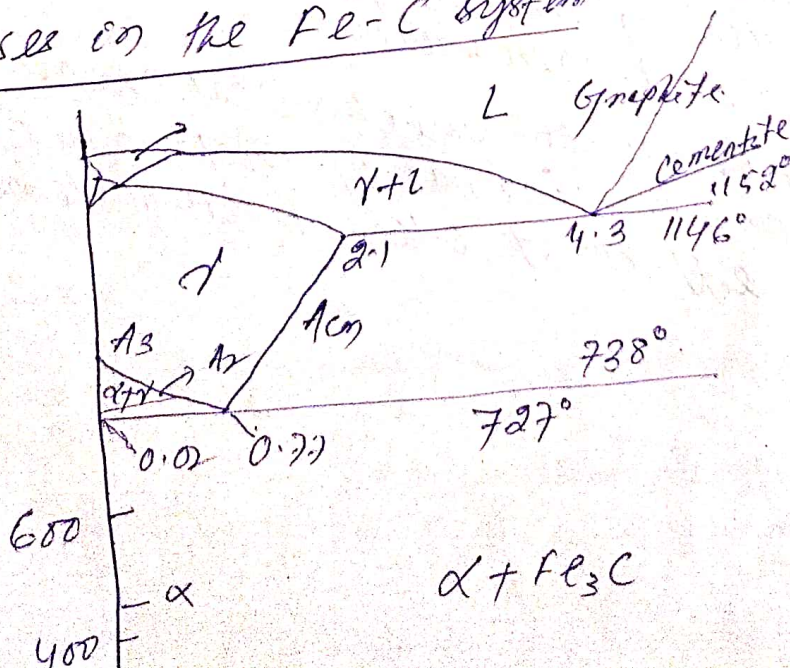 ses in the Fe-C system
L Graphite
cementite
γ+l
1152°
2.1
4.3 1146°
γ
A3
Acm
A2
738°
α+γ
727°
0.02 0.77
600
α + Fe3C
α
400